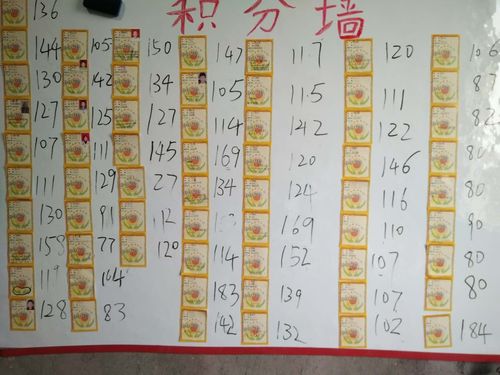 积分墙
136
144 105 150 147 117 120 106
130 142 134 105 115 111 87
127 125 127 114 122 82
107 111 145 169 120 146 80
111 129 27 134 124 116 80
130 91 112 169 110 90
158 77 120 114 152 107 80
119 104 183 139 107 80
128 83 142 132 102 184